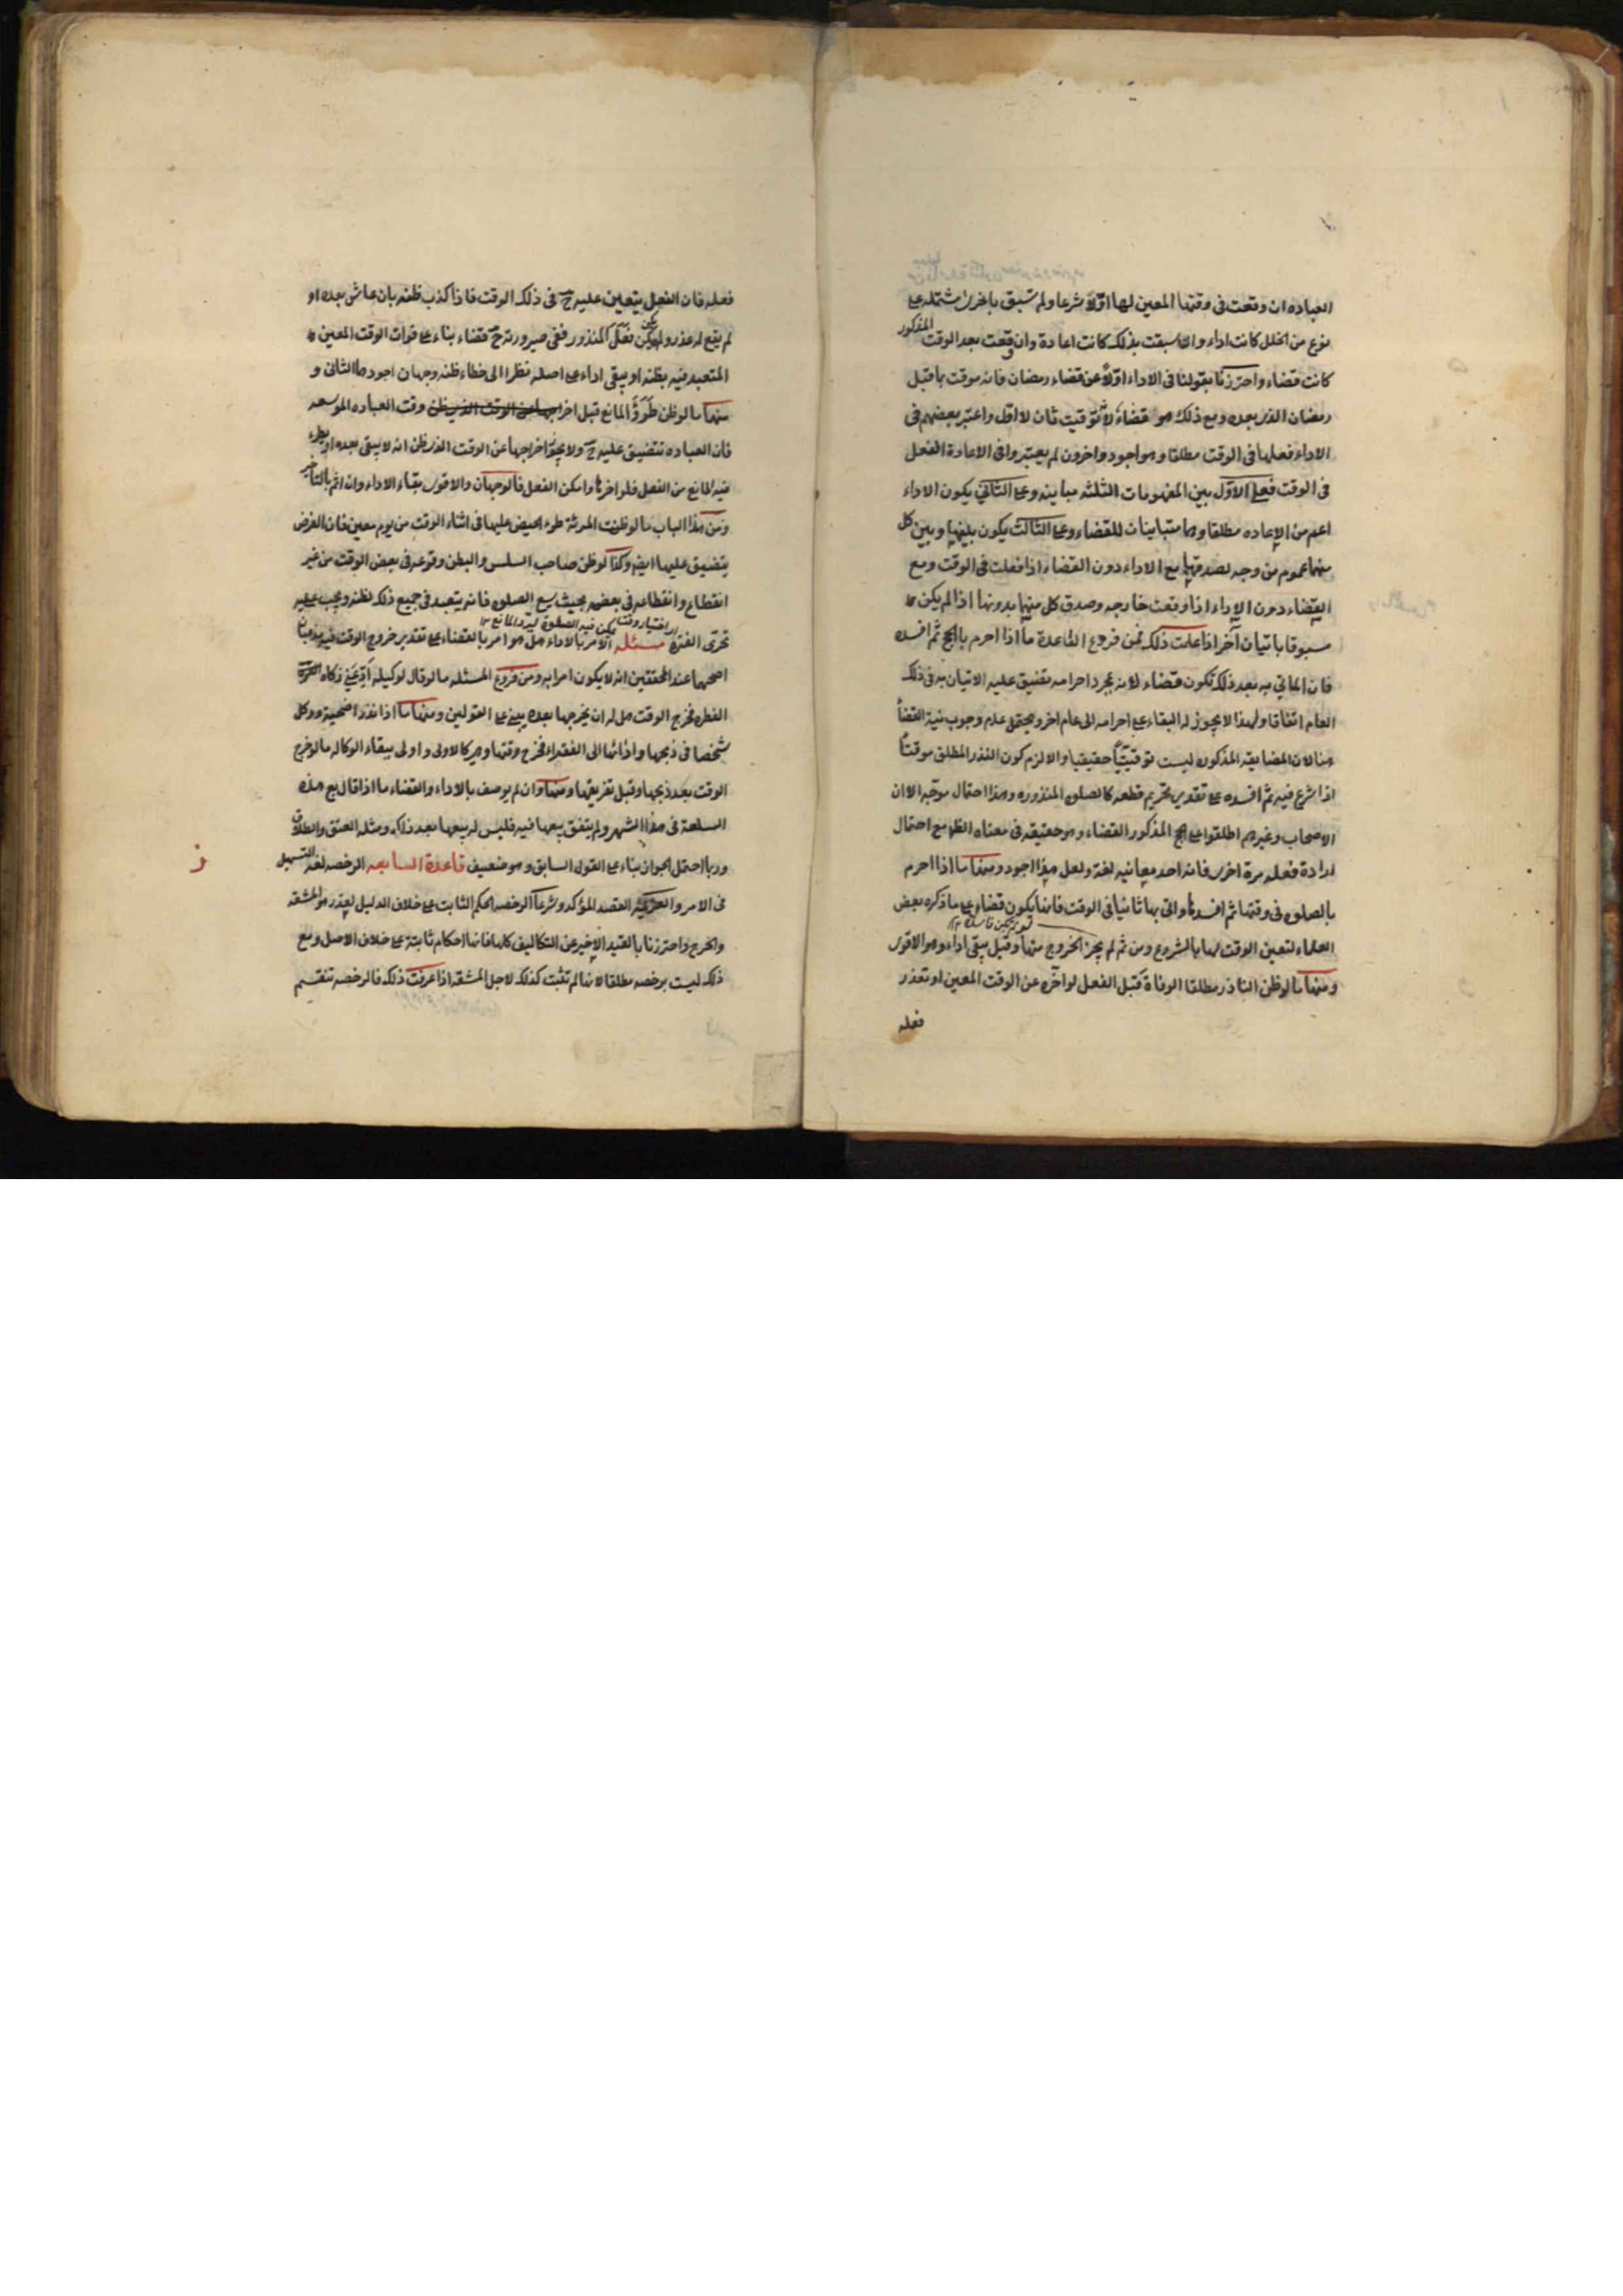 العباده ان وقعت فى وقتها المعين لها اوّلاً شرعا ولم تسبق باخرى مشتمله على
نوع من الخلل كانت اداء وان سبقت بذلك كانت اعادة وان وقعت بعد الوقت المذكور
كانت قضاء واحترزنا بقولنا فى الاداء اوّلاً عن قضاء رمضان فانه موقت بما قبل
رمضان الذى بعده ومع ذلك هو قضاء لانه توقيت ثان لا اول واعتبر بعضهم فى
الاداء فعلها فى الوقت مطلقا وهو اجود واخرون لم يعتبروا فى الاعادة الفعل
فى الوقت فعلى الاوّل بين المفهومات الثلثه مباينه وعلى الثانى يكون الاداء
اعم من الاعاده مطلقا وهما متباينان للقضاء وعلى الثالث يكون بينهما وبين كل
منهما عموم من وجه لصدقها مع الاداء دون القضاء اذا فعلت فى الوقت ومع
القضاء دون الاداء اذا وقعت خارجه وصدق كل منهما بدونها اذا لم يكن
مسبوقا باتيان آخر اذا علمت ذلك فمن فروع القاعدة ما اذا احرم بالحج ثم افسده
فان الماتي به بعد ذلك يكون قضاء لانه بمجرد احرامه تضيق عليه الاتيان به فى ذلك
العام اتفاقا ولهذا لا يجوز له البقاء على احرامه الى عام اخر ويحتمل عدم وجوب نية القضأ
هنا لان المضايقه المذكوره ليست توقيتاً حقيقيا والا لزم كون النذر المطلق موقتاً
اذا شرع فيه ثم افسده على تقدير تحريم قطعه كالصلوه المنذوره وهذا احتمال موجّه الا ان
الاصحاب وغيرهم اطلقوا على الحج المذكور القضاء وهو حقيقه فى معناه الظ مع احتمال
ارادة فعله مرة اخرى فانه احد معانيه لغة ولعل هذا اجود ومنها ما اذا احرم
بالصلوه فى وقتها ثم افسدها واتى بها ثانيا فى الوقت فانها يكون قضاء على ما ذكره بعض
العلماء لتعين الوقت لها بالشروع ومن ثم لم يجز الخروج منها وقيل يبقى اداء وهو الاقوى
ومنها ما لو ظن الناذر مطلقا الوفاة قبل الفعل لو اخره عن الوقت المعين او تعذر
فعله
فعله فان الفعل يتعين عليه ح فى ذلك الوقت فاذا كذب ظنه بان عاش بعده او
لم يقع له عذر ولم يكن فعل المنذور ففى صيرورته ح قضاء بناء على فوات الوقت المعين
المتعبد فيه بظنه او يبقى اداء على اصله نظرا الى خطاء ظنه وجهان اجودهما الثانى و
منها ما لو ظن طروّ المانع قبل اخراجها عن الوقت الذى يظن وقت العباده الموسعه
فان العباده تتضيق عليه ح ولا يجوز اخراجها عن الوقت الذى ظن انه لا يبقى بعده او يطرء
فيه المانع من الفعل فلو اخرها وامكن الفعل فالوجهان والاقوى بقاء الاداء وان اثم بالتأخير
ومن هذا الباب ما لو ظنت المرئة طرء الحيض عليها فى اثناء الوقت من يوم معين فان الفرض
يتضيق عليها ايض وكذا لو ظن صاحب السلس والبطن وقوعه فى بعض الوقت من غير
انقطاع وانقطاعه فى بعضه بحيث يسع الصلوه فانه يتعبد فى جميع ذلك بظنه ويجب عليه
او اختيار وقت يمكن فيه الصلوة
تحرى الفترة مسئله الامر بالاداء هل هو امر بالقضاء على تقدير خروج الوقت فيه مذهبان
اصحهما عند المحققين انه لا يكون امرا به ومن فروع المسئله ما لو قال لوكيله ادّ عنى زكاه
الفطره فخرج الوقت هل له ان يخرجها بعده يبنى على القولين ومنها ما اذا نذر اضحية ووكل
شخصا فى ذبحها وادائها الى الفقراء فخرج وقتها وهى كالاولى واولى ببقاء الوكاله ما لو خرج
الوقت بعد ذبحها وقبل تفريقها ومنها وان لم يوصف بالاداء والقضاء ما اذا قال بع هذه
السلعة فى هذا الشهر ولم يتفق بيعها فيه فليس له بيعها بعد ذلك ومثله العتق والطلاق
وربما احتمل الجواز بناء على القول السابق وهو ضعيف قاعدة السابعه الرخصه لغة التسهيل
ز
فى الامر والعزيمة القصد المؤكد وشرعا الرخصه الحكم الثابت على خلاف الدليل لعذر هو المشقه
والحرج واحترزنا بالقيد الاخير عن التكاليف كلها فانها احكام ثابتة على خلاف الاصل ومع
ذلك ليست برخصه مطلقا لانها لم تثبت كذلك لاجل المشقه اذا عرفت ذلك فالرخصه تنقسم